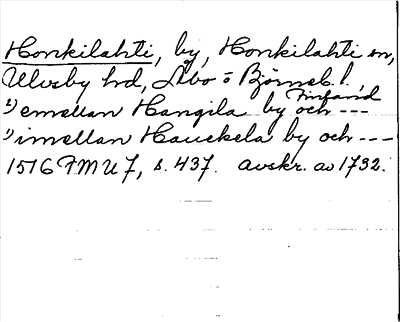 Honkilahti, by, Honkilahti sn,
Ulvsby hd, Åbo o Björneb. l.,
Finland
1) emellan Hangila by och ---
1) imellan Hauckela by och ---
1516 FMU 7, s. 437. avskr. av 1732.